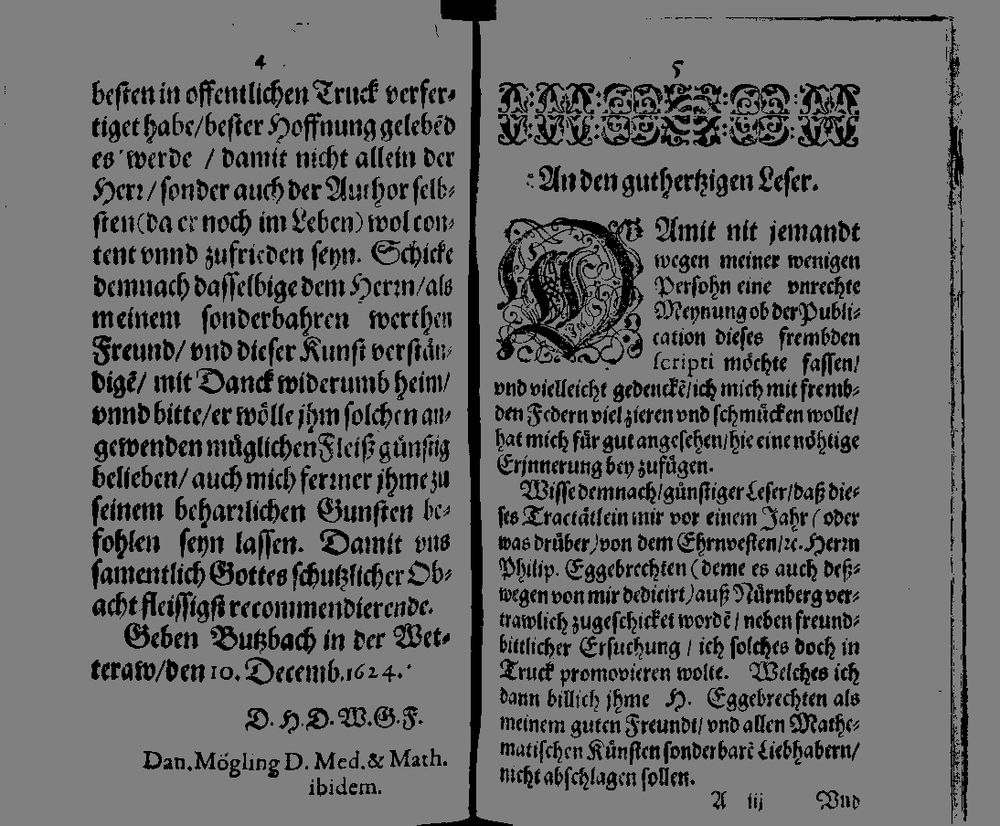 4
besten in offentlichen Truck verfer-
tiget habe/bester Hoffnung gelebẽd
es werde / damit nicht allein der
Herr/sonder auch der Author selb-
sten(da er noch im Leben) wol con-
tent vnnd zufrieden seyn. Schicke
demnach dasselbige dem Herrn/als
meinem sonderbahren werthen
Freund/ vnd dieser Kunst verstän-
digẽ/ mit Danck widerumb heim/
vnnd bitte/er wölle jhm solchen an-
gewenden müglichen Fleiß günstig
belieben/ auch mich ferrner jhme zu
seinem beharrlichen Gunsten be-
fohlen seyn lassen. Damit vns
samentlich Gottes schutzlicher Ob-
acht fleissigst recommendierende.
Geben Butzbach in der Wet-
teraw/den 10. Decemb.1624.
D. H. D. W. G. F.
Dan. Mögling D. Med. & Math.
ibidem.
5
An den guthertzigen Leser.
DAmit nit jemandt
wegen meiner wenigen
Persohn eine vnrechte
Meynung ob der Publi-
cation dieses frembden
scripti möchte fassen/
vnd vielleicht gedenckẽ/ich mich mit fremb-
den Federn viel zieren vnd schmücken wolle/
hat mich für gut angesehen/hie eine nöhtige
Erjnnerung bey zufügen.
Wisse demnach/günstiger Leser/daß die-
ses Tractätlein mir vor einem Jahr (oder
was drüber)von dem Ehrnvesten/ꝛc. Herrn
Philip. Eggebrechten (deme es auch deß-
wegen von mir dedicirt)auß Nürnberg ver-
trawlich zugeschicket wordẽ/ neben freund-
bittlicher Ersuchung / ich solches doch in
Truck promovieren wolte. Welches ich
dann billich jhme H. Eggebrechten als
meinem guten Freundt/ vnd allen Mathe-
matischen Künsten sonderbarẽ Liebhabern/
nicht abschlagen sollen.
A iij Vnd